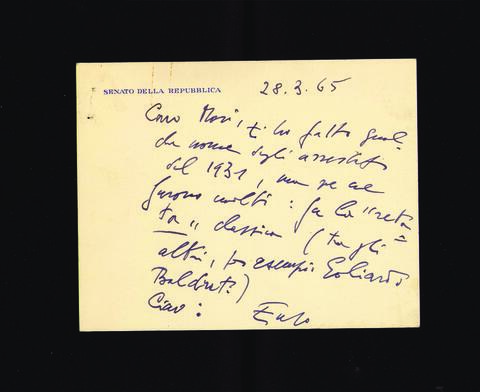 SENATO DELLA REPUBBLICA
28.3.65
Caro Mori, ti ho fatto qual-
che nome degli arrestati
del 1931, ma ve ne
furono molti: fu la "reta=
ta" classica (tra gli
altri, per esempio Goliardo
Ciao: